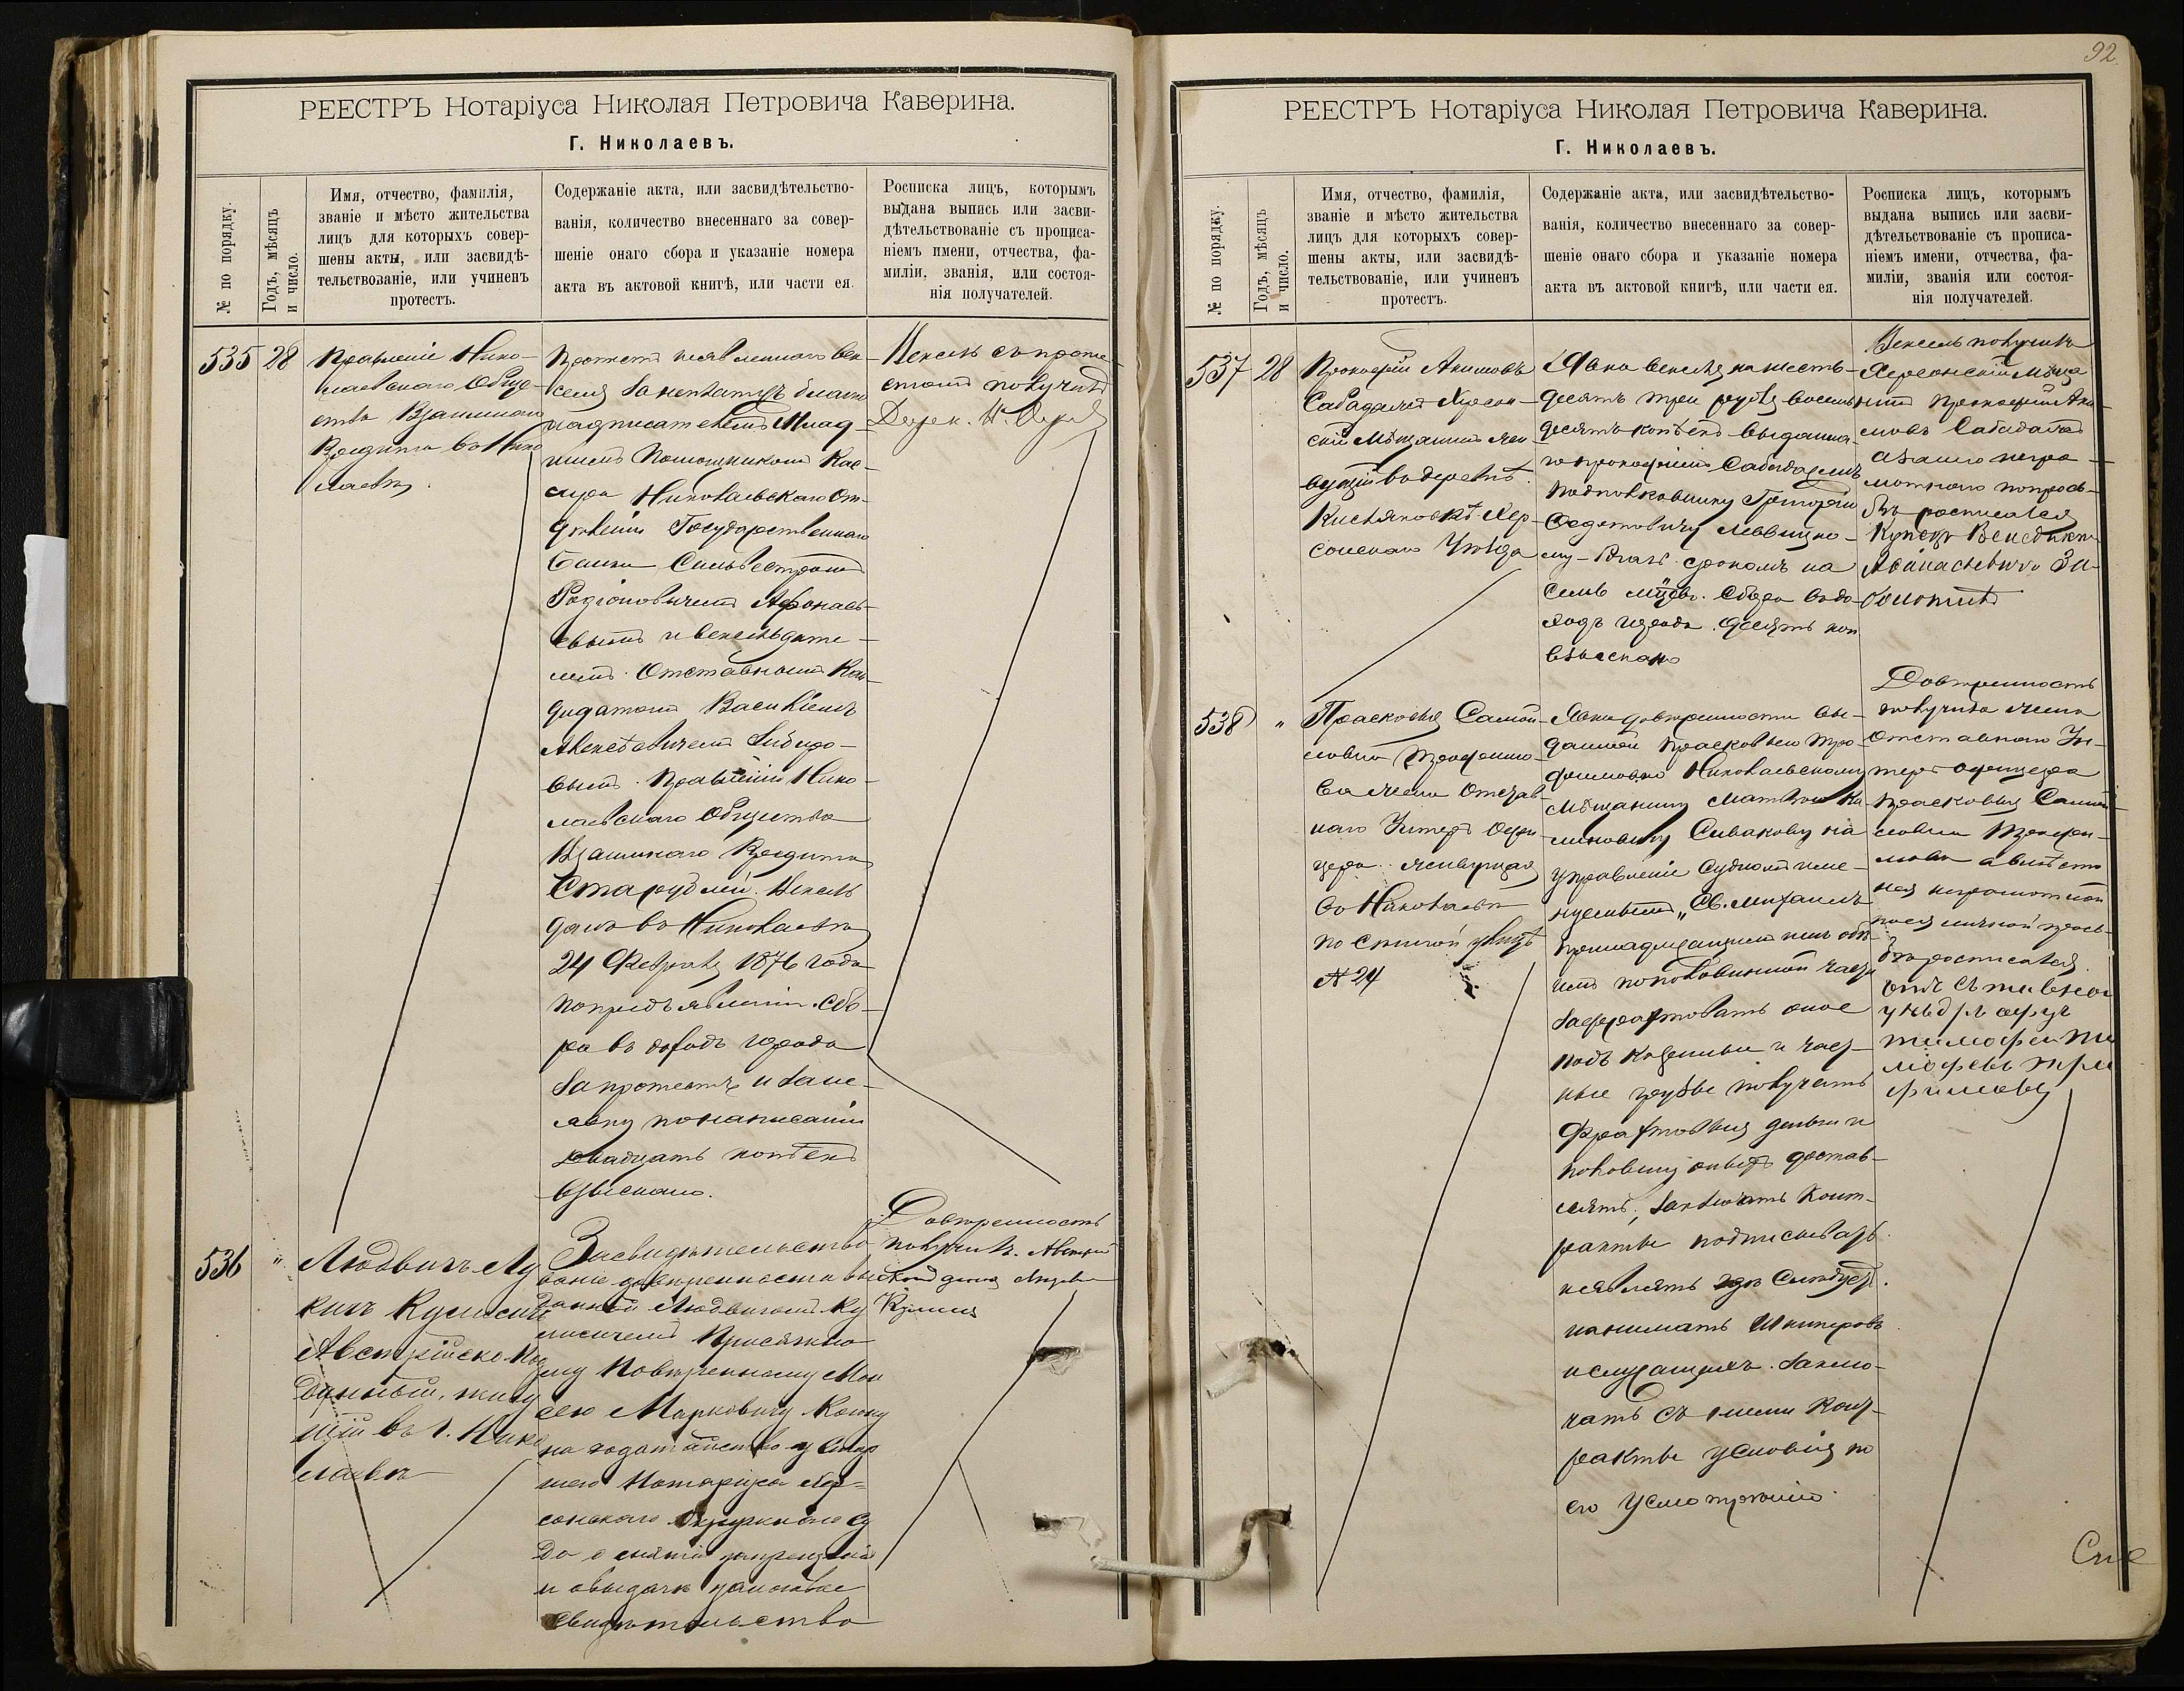 РЕЕСТРЪ Нотаріуса Николая Петровича Каверина.
Г. Николаевъ.
№ по порядку.
Годъ, мѣсяцъ
и число.
Имя, отчество, фамилія,
званіе и мѣсто жительства
лицъ для которыхъ совер-
шены акты, или засвидѣ-
тельствованіе, или учиненъ
протестъ.
Содержаніе акта, или засвидѣтельство-
ванія, количество внесеннаго за совер-
шеніе онаго сбора и указаніе номера
акта въ актовой книгѣ, или части ея.
Росписка лицъ, которымъ
выдана выпись или засви-
дѣтельствованіе съ прописа-
ніемъ имени, отчества, фа-
миліи, званія, или состоя-
нія получателей.
535
28
Правленіе Нико-
лаевскаго Обще-
ства Взаимнаго
Кредита въ Нико
лаевѣ.
Протестъ неявленнаго век-
селя за неплатежъ бланко
надписателемъ Млад-
шимъ Помощникомъ Кас-
сира Николаевскаго От-
дѣленія Государственнаго
Банка Сильвестромъ
Родіоновичемъ Афонась-
евымъ и векселедате-
лемъ Отставнымъ Кан-
дидатомъ Василіемъ
Алексѣевичемъ
вымъ. Правленію Нико-
лаевскаго Общества
Взаимнаго Кредита
Ста рублей. Вексель
данъ въ Николаевѣ
24 Февраля 1876 года
по предъявленіи. Сбо-
ра въ доходъ города
за протестъ и за не-
явку по написанію
двадцать копѣекъ
взыскано.
Вексель съ проте-
стомъ получилъ
536
"
Людвигъ Лу
кичъ
Австрійско-Под
данный, живу
щій въ г. Нико
лаевѣ
Засвидѣтельство
ваніе довѣренности вы
данной Людвигомъ
Присяжно
му Повѣренному Мои
сею Марковичу
на ходатайство у Стар
шаго Нотаріуса Хер-
сонскаго Окружнаго Су
да о снятіи запрещенія
и о выдачѣ
свидѣтельства
Довѣренность
получилъ. Австрій
РЕЕСТРЪ Нотаріуса Николая Петровича Каверина.
Г. Николаевъ.
92
№ по порядку.
Годъ, мѣсяцъ
и число.
Имя, отчество, фамилія,
званіе и мѣсто жительства
лицъ для которыхъ совер-
шены акты, или засвидѣ-
тельствованіе, или учиненъ
протестъ.
Содержаніе акта, или засвидѣтельство-
ванія, количество внесеннаго за совер-
шеніе онаго сбора и указаніе номера
акта въ актовой книгѣ, или части ея.
Росписка лицъ, которымъ
выдана выпись или засви-
дѣтельствованіе съ прописа-
ніемъ имени, отчества, фа-
миліи, званія или состоя-
нія получателей.
537
28
Прокофій Акимовъ
Сабадалъ Херсон-
скій Мѣщанинъ жи
вущій въ деревнѣ
Киселяновкѣ Хер-
сонскаго Уѣзда
Явка векселя на шесть-
десятъ три рубля восемь
десятъ копѣекъ выданна-
го Прокофіемъ Сабадаломъ
Подполковнику Григорію
Федотовичу Левицко-
му срокомъ на
семь мѣсяц. Сбора въ до-
ходъ города десять коп
взыскано
Вексель получилъ
Херсонскій Мѣща
нинъ Прокофій Аки-
мовъ Сабадалъ
а за него негра-
мотнаго по прось-
бѣ росписался
Купецъ Венедиктъ
Афанасьевичъ
538
"
Прасковья Самой-
ловна Трофимо-
ва жена Отстав-
наго Унтеръ Офи
цера живущая
въ Николаевѣ
по улицѣ
№ 24
Явка довѣренности вы-
данной Прасковьею Тро-
фимовою Николаевскому
Мѣщанину Матвѣю Ка
линовичу Сивакову на
управленіе судномъ име-
нуемымъ „Св. Михаилъ
принадлежащимъ имъ обо-
имъ по половинной части
зафрахтовать оное
подъ казенные и част-
ные грузы получать
фрахтовыя деньги и
половину оныхъ достав-
лять, заключать конт-
ракты подписывать
и являть гдѣ слѣдуетъ
нанимать Шкиперовъ
и служащихъ. Заклю-
чать съ ними Конт-
ракты условія по
его усмотрѣнію.
Довѣренность
получила жена
Отставного Ун-
теръ офицера
Прасковья Самой-
ловна Трофи-
мова а вмѣсто
нея неграмотной
по ея личной прось-
бѣ росписался